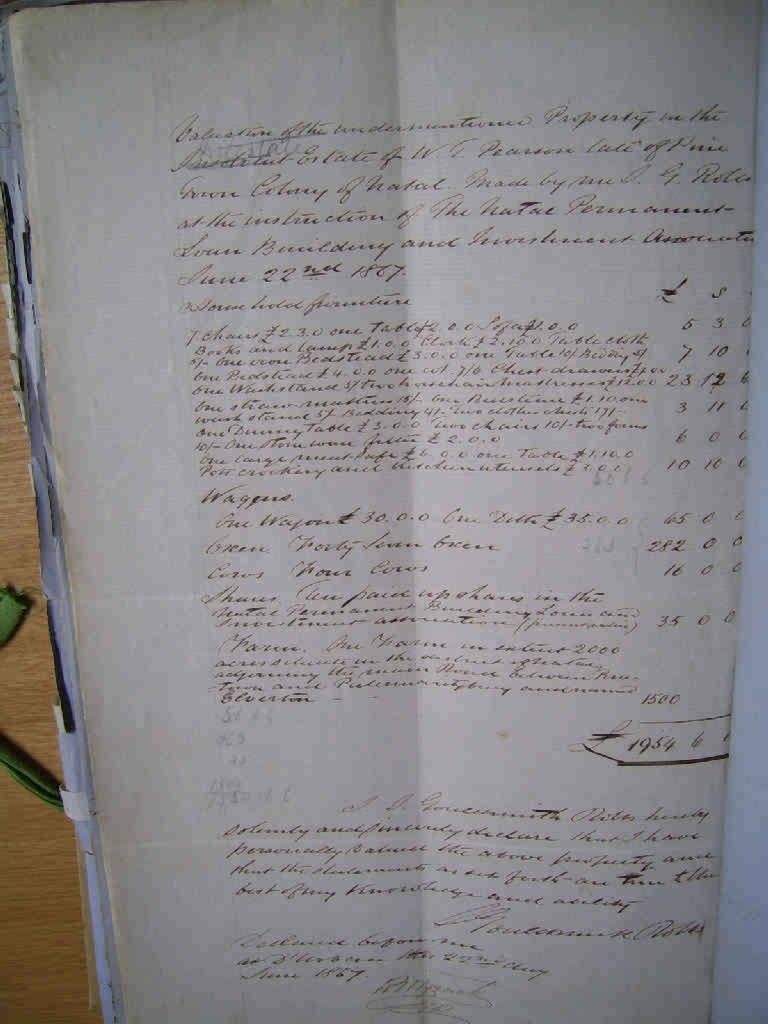 Valuation of the undermentioned Property in the
Insolvent Estate of W. T. Pearson late of Pine
Intestate
Town Colony of Natal. Made by me J. G. Roles
at the instruction of The Natal Permanent
Loan Building and Investment Association
June 22nd 1867.
Household furniture £ S
7 Chairs £2.3.0 one Table £2.0.0 Sofa £1.0.0 5 3 0
Books and Lamp £1.0.0 Clock £2.10.0 Table cloth
5/- One iron Bedstead £3.0.0 one Table 10/ Bedding 5/ 7 10
One Bedstead £4.0.0 one cot 7/6 Chest drawers
one Washstand 5/ two horsehair mattresses £12.00 23 12 6
One straw mattress one £1.10 one
wash stand 5/ Bedding 4/- Two clothes chests 17/- 3 11 0
One Dining table £3.0.0 Two chairs 10/- two forms
10/- One stone ware filter £2.0.0 6 0 0
One large meat safe £6.0.0 one Table £1.10.0
Pots crockery and kitchen utensils £3.0.0 10 10 0
Waggons.
One Wagon £30.0.0 One Ditto £35.0.0 65 0 0
Oxen Forty Seven Oxen 282 0 0
Cows Four Cows 16 0 0
Shares. Ten paid up shares in the
Natal Permanent Building Loan and
Investment association 35 0 0
Farm. One Farm in extent 2000
acres situate in the district
adjoining the main Road between Pine
town and Pietermaritzburg and named
Elverton - - 1500
£ 1954 6
I J. Gouldsmith Roles hereby
solemnly and sincerely declare that I have
personally valued the above property and
that the statements as set forth are true to the
best of my knowledge and ability
J Gouldsmith Roles
Declared before me
at D'Urban this 22nd day
June 1867.